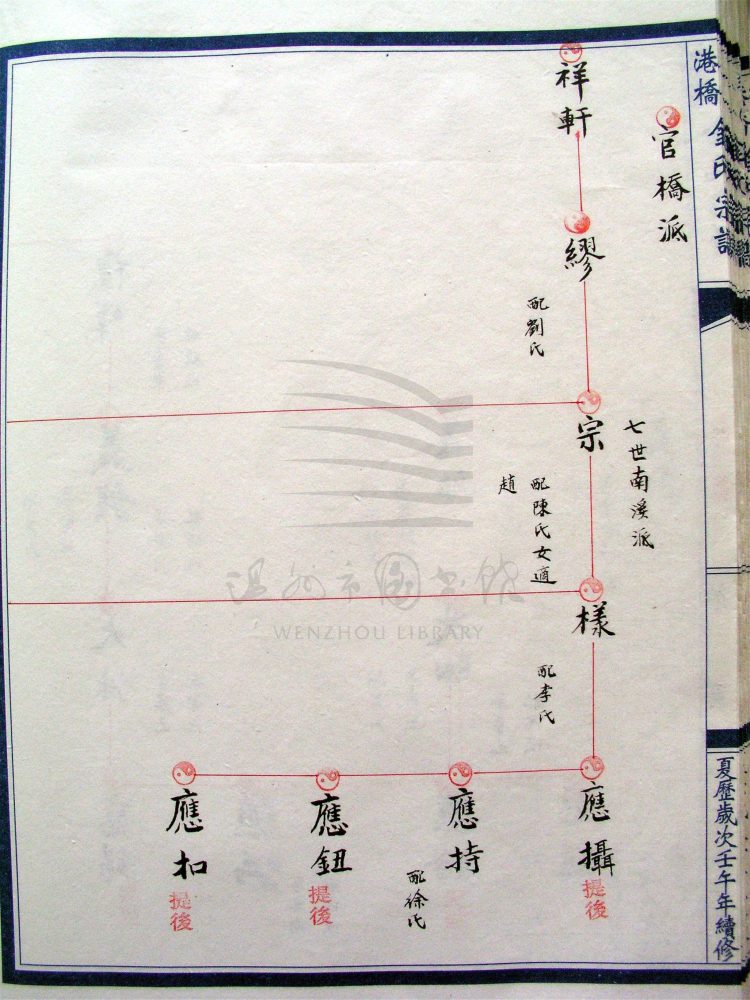 港橋 金氏宗譜
夏歷歲次壬午年續修
官橋派
祥軒
繆
配劉氏
七世南溪派
宗
配陳氏女適
趙
樣
配李氏
應攝
提後
應持
配徐氏
應鈕
提後
應扣
提後
温州市图书馆
WENZHOU LIBRARY